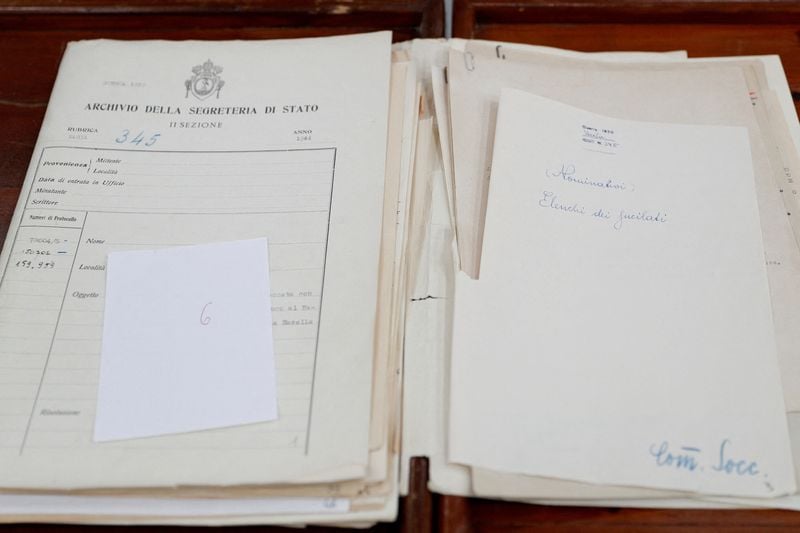 ARCHIVIO DELLA SEGRETERIA DI STATO
II SEZIONE
RUBRICA
345
ANNO
Provenienza
Mittente
Località
Data di entrata in Ufficio
Minutante
Scrittore
Numeri di Protocollo
Nome
Località
159.959
Oggetto
Risoluzione
6
(Nominativi)
Elenchi dei fucilati
Com. Socc.